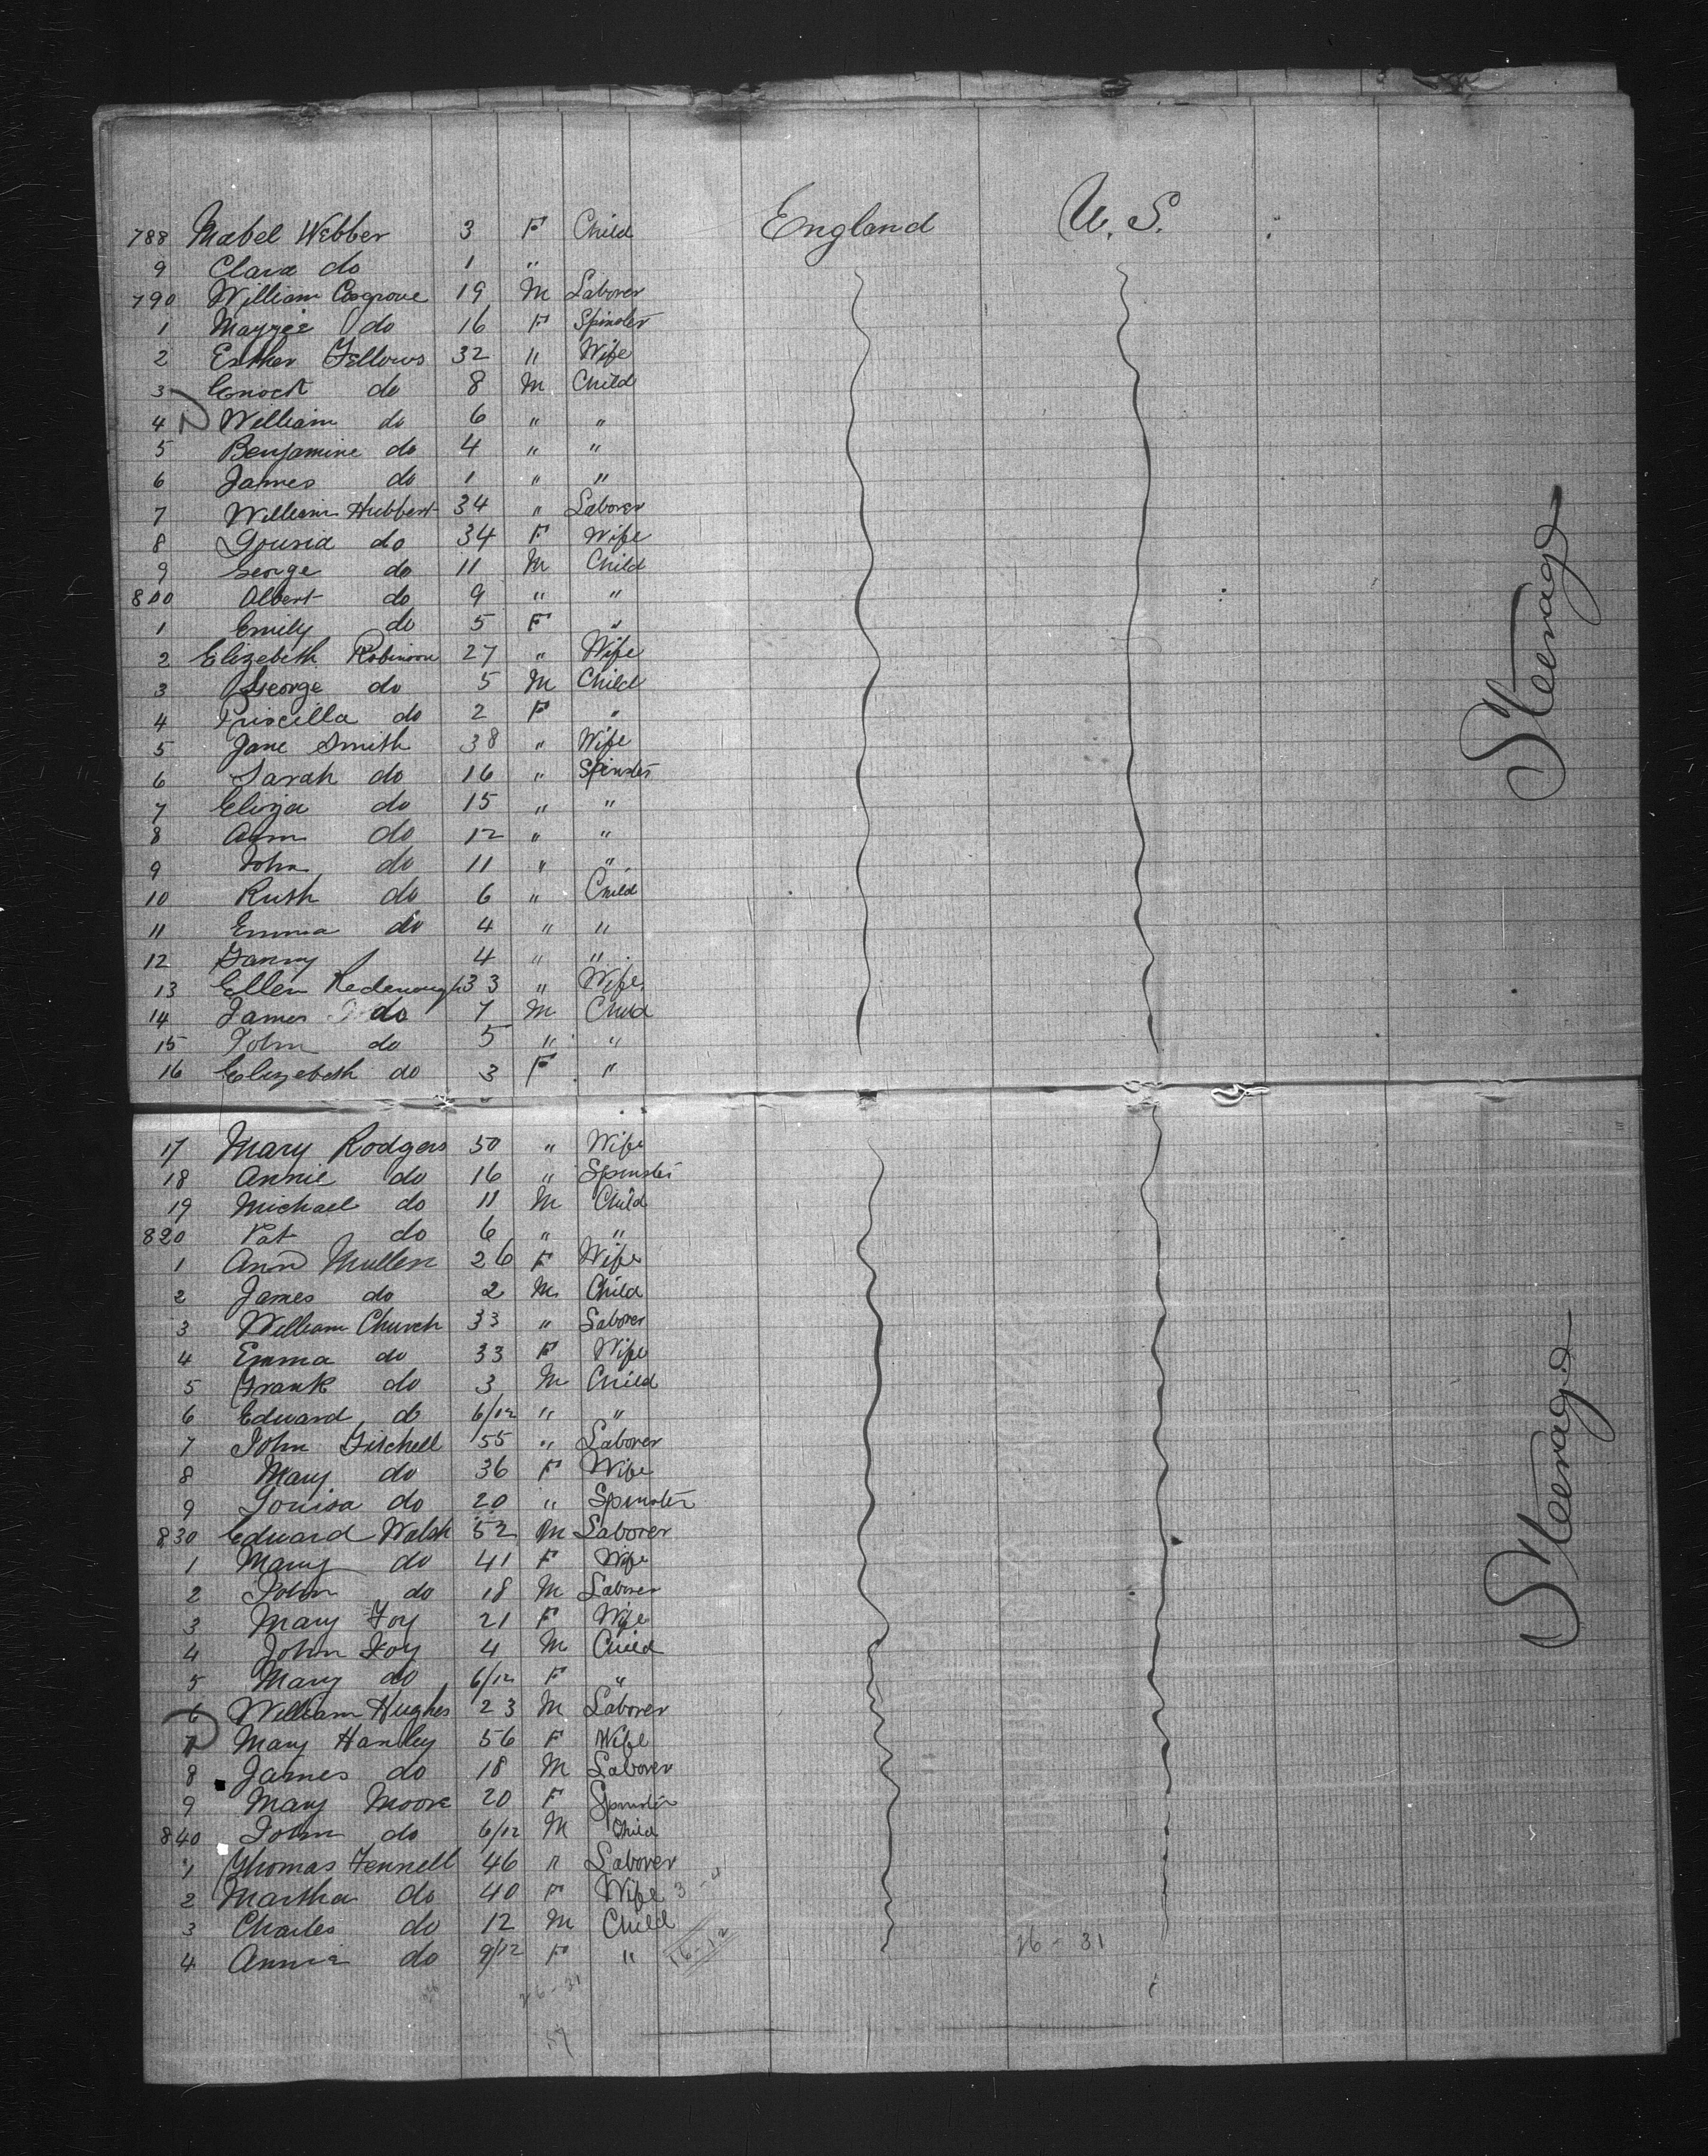 788 Mabel Webber 3 F Child England U. S.
9 Clara do 1 "
790 William Cosgrove 19 M Laborer
1 Maggie do 16 F Spinster
2 Esther Fellows 32 " Wife
3 Enock do 8 M Child
4 William do 6 " "
5 Benjamine do 4 " "
6 James do 1 " "
7 William Hubbert 34 " Laborer
8 Louisa do 34 F Wife
9 George do 11 M Child
800 Albert do 9 " "
1 Emily do 5 F "
2 Elizebeth Robinson 27 " Wife
3 George do 5 M Child
4 Priscilla do 2 F "
5 Jane Smith 38 " Wife
6 Sarah do 16 " Spinster
7 Eliza do 15 " "
8 Ann do 12 " "
9 John do 11 " "
10 Ruth do 6 " Child
11 Emma do 4 " "
12 Fanny 4 " "
13 Ellen 33 " Wife
14 James do 7 M Child
15 John do 5 " "
16 Elizebeth do 3 F "
Steerage
17 Mary Rodgers 50 " Wife
18 Annie do 16 " Spinster
19 Michael do 11 M Child
820 Pat do 6 " "
1 Ann Mullen 26 F Wife
2 James do 2 M Child
3 William Church 33 " Laborer
4 Emma do 33 F Wife
5 Frank do 3 M Child
6 Edward do 6/12 " "
7 John 55 " Laborer
8 Mary do 36 F Wife
9 Louisa do 20 " Spinster
830 Edward Walsh 52 M Laborer
1 Mary do 41 F Wife
2 John do 18 M Laborer
3 Mary Foy 21 F Wife
4 John Foy 4 M Child
5 Mary do 6/12 F "
6 William Hughes 23 M Laborer
7 Mary Hanley 56 F Wife
8 James do 18 M Laborer
9 Mary Moore 20 F Spinster
840 John do 6/12 M Child
1 Thomas Fennell 46 " Laborer
2 Martha do 40 F Wife
3 Charles do 12 M Child
4 Annie do 9/12 F " 16-12 26-31
26-31
57
Steerage